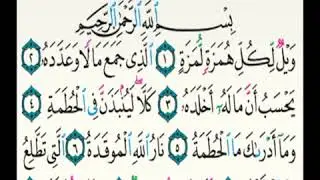 بِسْمِ ٱللَّهِ ٱلرَّحْمَٰنِ ٱلرَّحِيمِ
وَيْلٌ لِّكُلِّ هُمَزَةٍ لُّمَزَةٍ ١ ٱلَّذِى جَمَعَ مَالًا وَعَدَّدَهُۥ ٢
يَحْسَبُ أَنَّ مَالَهُۥٓ أَخْلَدَهُۥ ٣ كَلَّا لَيُنۢبَذَنَّ فِى ٱلْحُطَمَةِ ٤
وَمَآ أَدْرَىٰكَ مَا ٱلْحُطَمَةُ ٥ نَارُ ٱللَّهِ ٱلْمُوقَدَةُ ٦ ٱلَّتِى تَطَّلِعُ